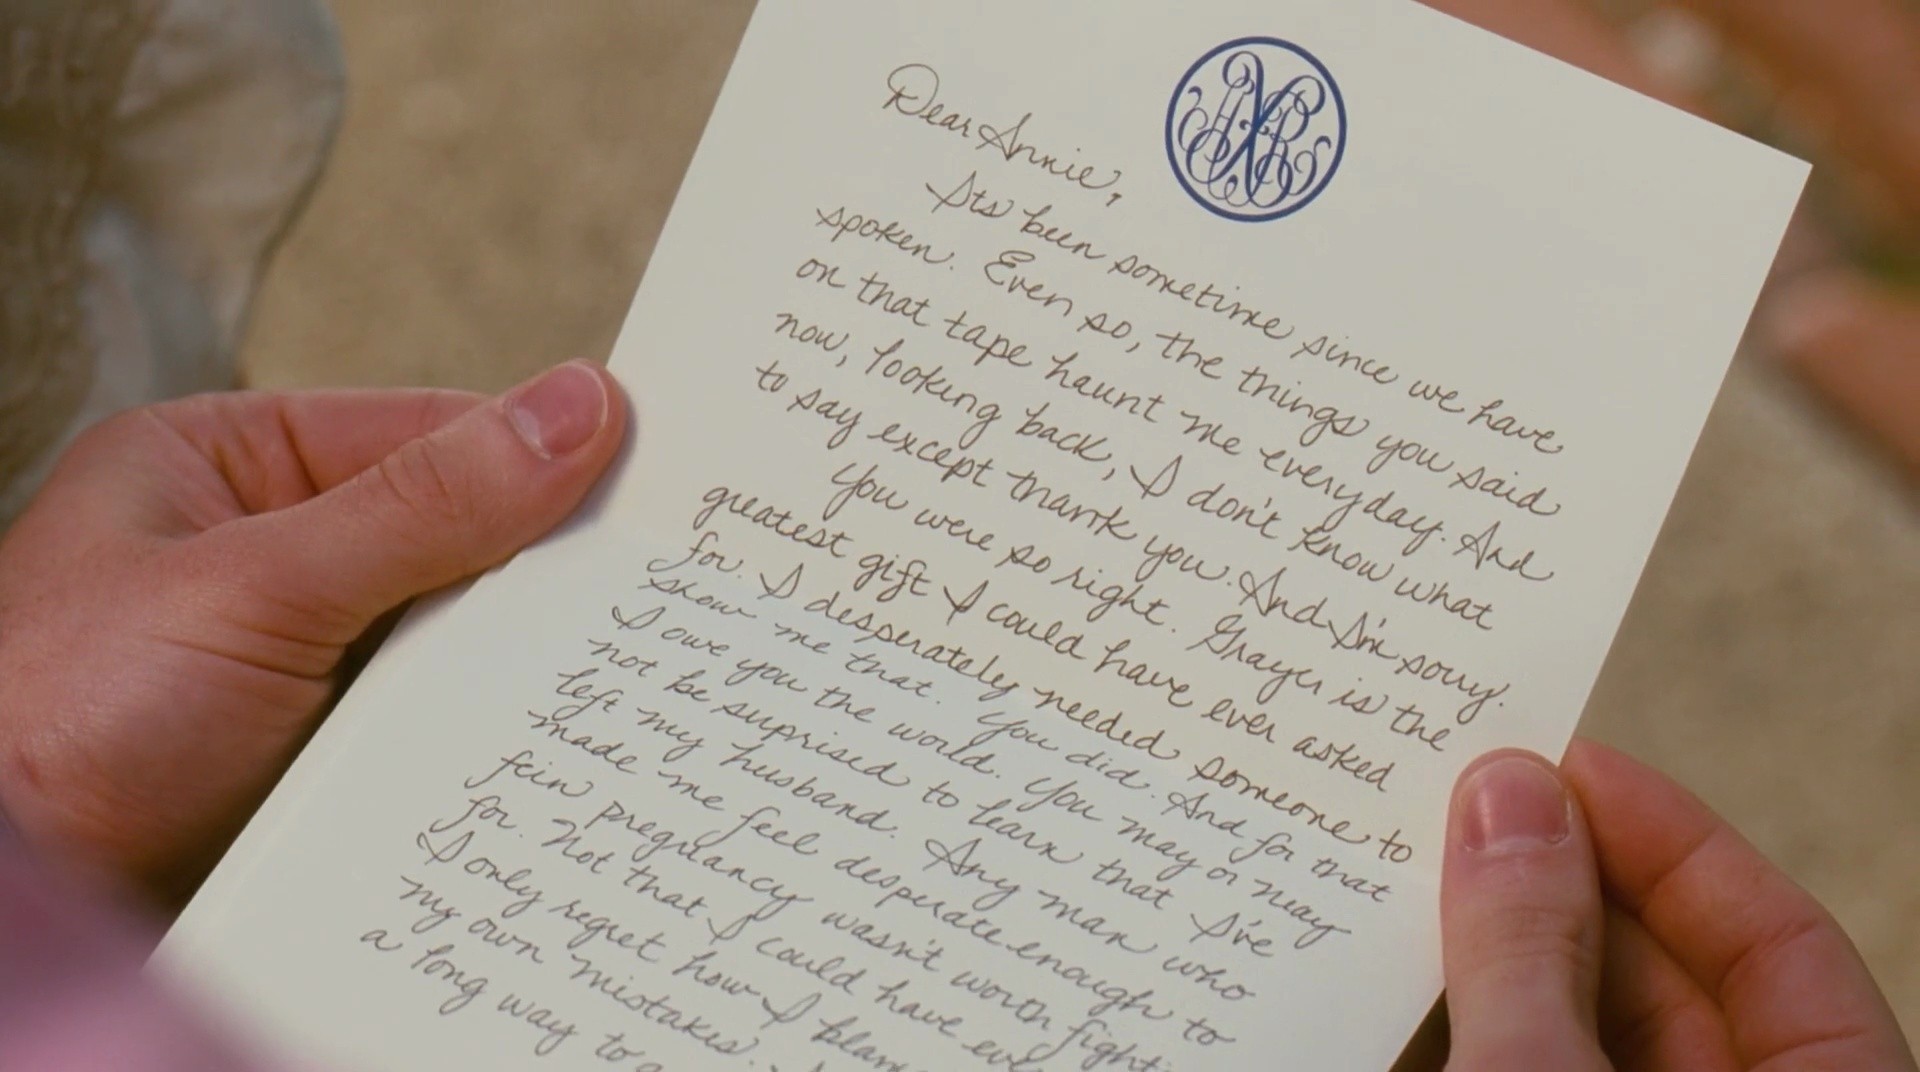 Dear Annie,
Its been sometime since we have
spoken. Even so, the things you said
on that tape haunt me everyday. And
now, looking back, I don't know what
to say except thank you. And I'm sorry.
You were so right. Grayer is the
greatest gift I could have ever asked
for. I desperately needed someone to
show me that. You did. And for that
I owe you the world. You may or may
not be suprised to learn that I've
left my husband. Any man who
made me feel desperate enough to
fein pregnancy wasn't worth
for. Not that I could have
I only regret how I
my own mistakes.
a long way to